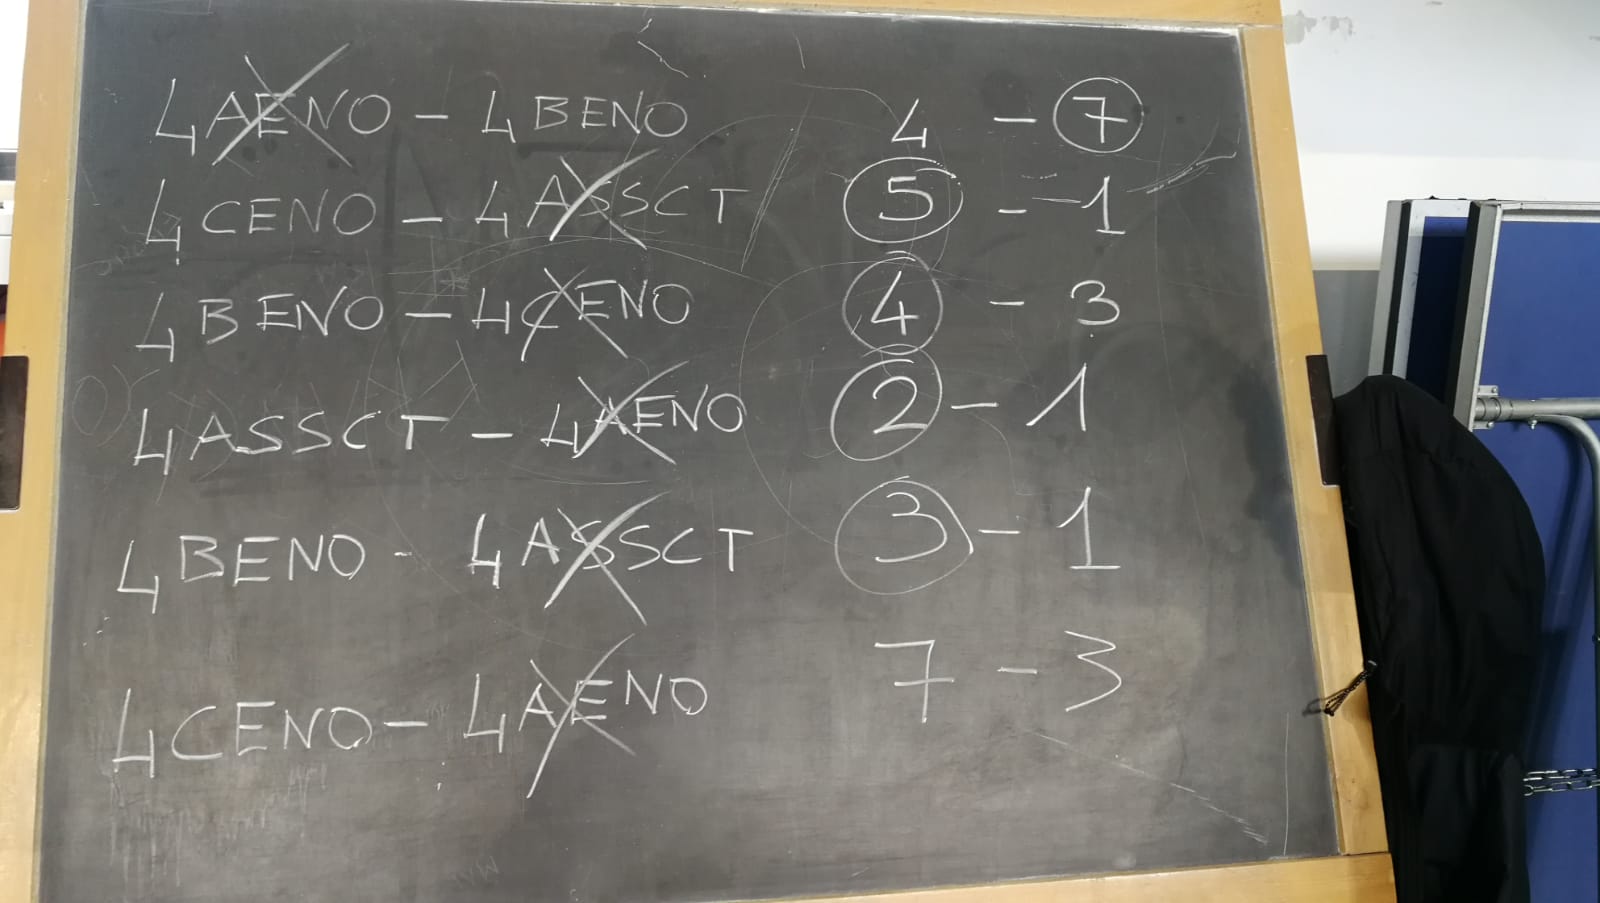 4AENO - 4BENO 4 - 7
4CENO - 4ASSCT 5 - 1
4BENO - 4CENO 4 - 3
4ASSCT - 4AENO 2 - 1
4BENO - 4ASSCT 3 - 1
4CENO - 4AENO 7 - 3